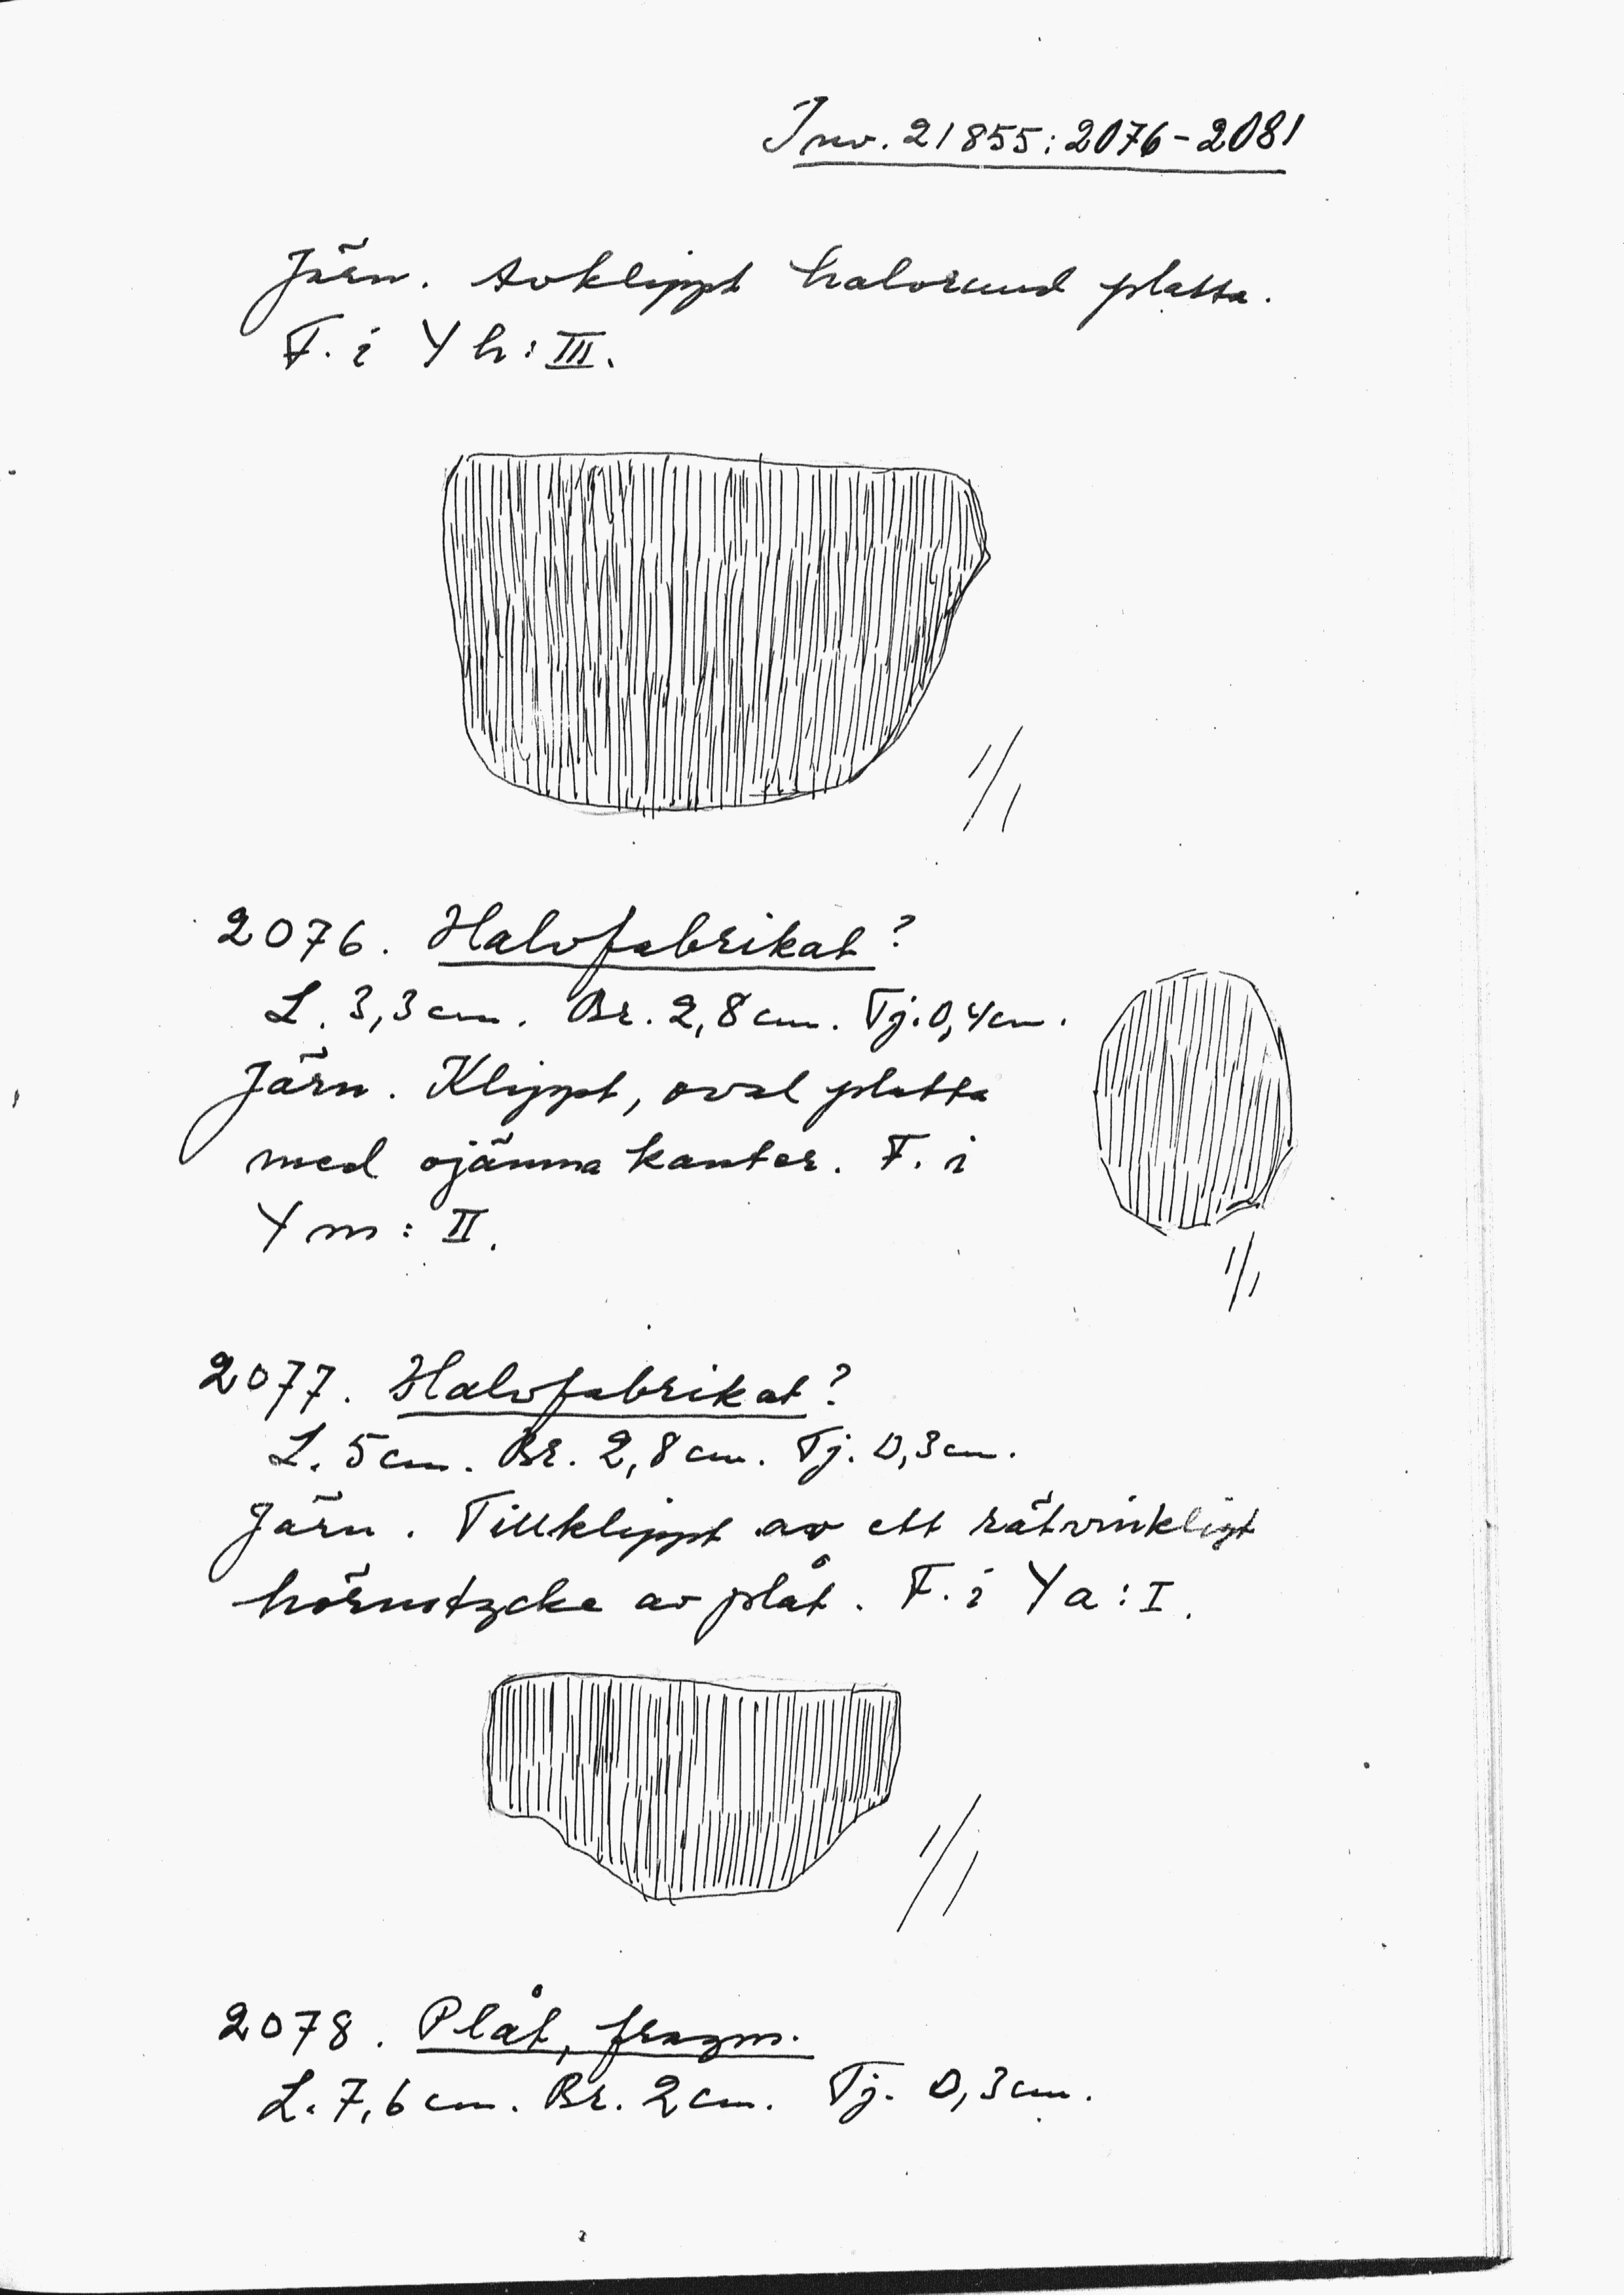 Inv. 21855:2076-2081
Järn. Avklippt halvrund platta.
F. i Y h: III.
1/1
2076. Halvfabrikat?
L. 3,3 cm. Br. 2,8 cm. Tj. 0,4 cm.
Järn. Klippt, oval platta
med ojämna kanter. F. i
Y m: II.
1/1
2077. Halvfabrikat?
L. 5 cm. Br. 2,8 cm. Tj. 0,3 cm.
Järn. Tillklippt av ett rätvinkligt
hörnstycke av plåt. F. i Y a: I.
1/1
2078. Plåt, fragm.
L. 7,6 cm. Br. 2 cm. Tj. 0,3 cm.